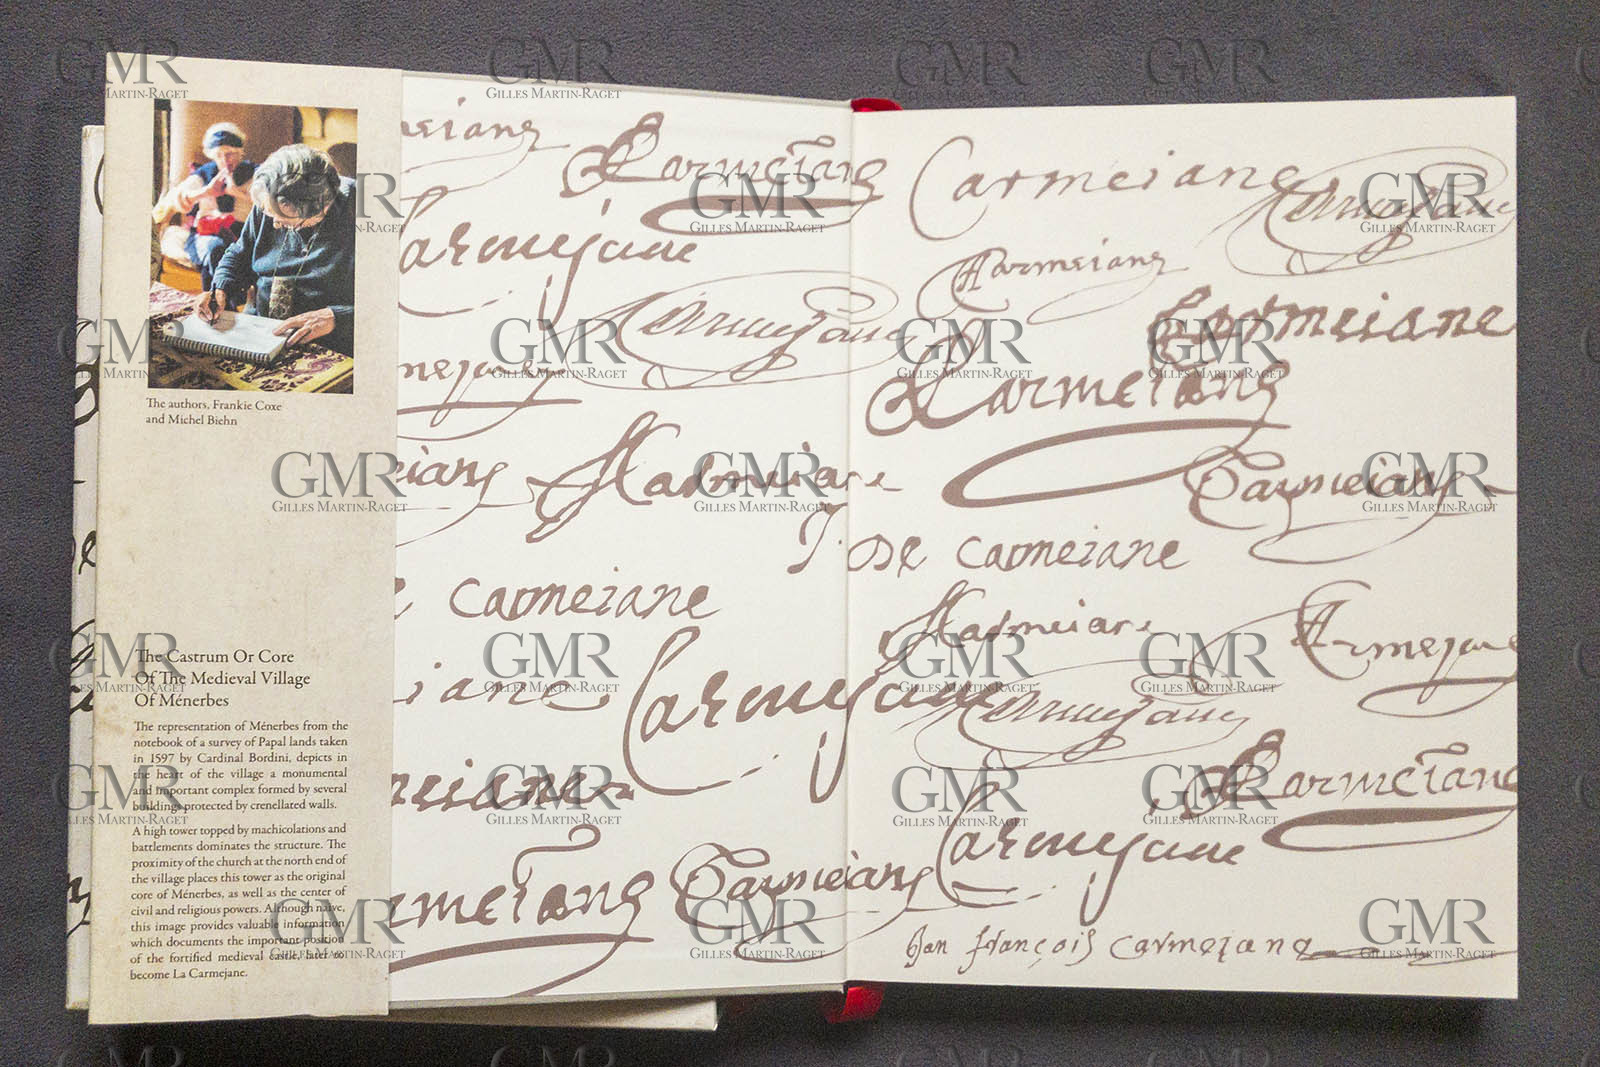 The authors, Frankie Coxe
and Michel Biehn
The Castrum Or Core
Of The Medieval Village
Of Ménerbes
The representation of Ménerbes from the
notebook of a survey of Papal lands taken
in 1597 by Cardinal Bordini, depicts in
the heart of the village a monumental
and important complex formed by several
buildings protected by crenellated walls.
A high tower topped by machicolations and
battlements dominates the structure. The
proximity of the church at the north end of
the village places this tower as the original
core of Ménerbes, as well as the center of
civil and religious powers. Although naive,
this image provides valuable information
which documents the important position
of the fortified medieval castle, later to
become La Carmejane.
Carmeiane
Carmejane
Carmejane
Carmeiane
Carmeiane
J. De Carmeiane
Carmeiane
Carmejane
Carmejane
Carmeiane
Carmeiane
Carmejane
Carmeiane
Carmeiane
Carmeiane
Carmejane
Carmejane
Carmeiane
Carmejane
Jan françois carmejane
GMR
GILLES MARTIN-RAGET